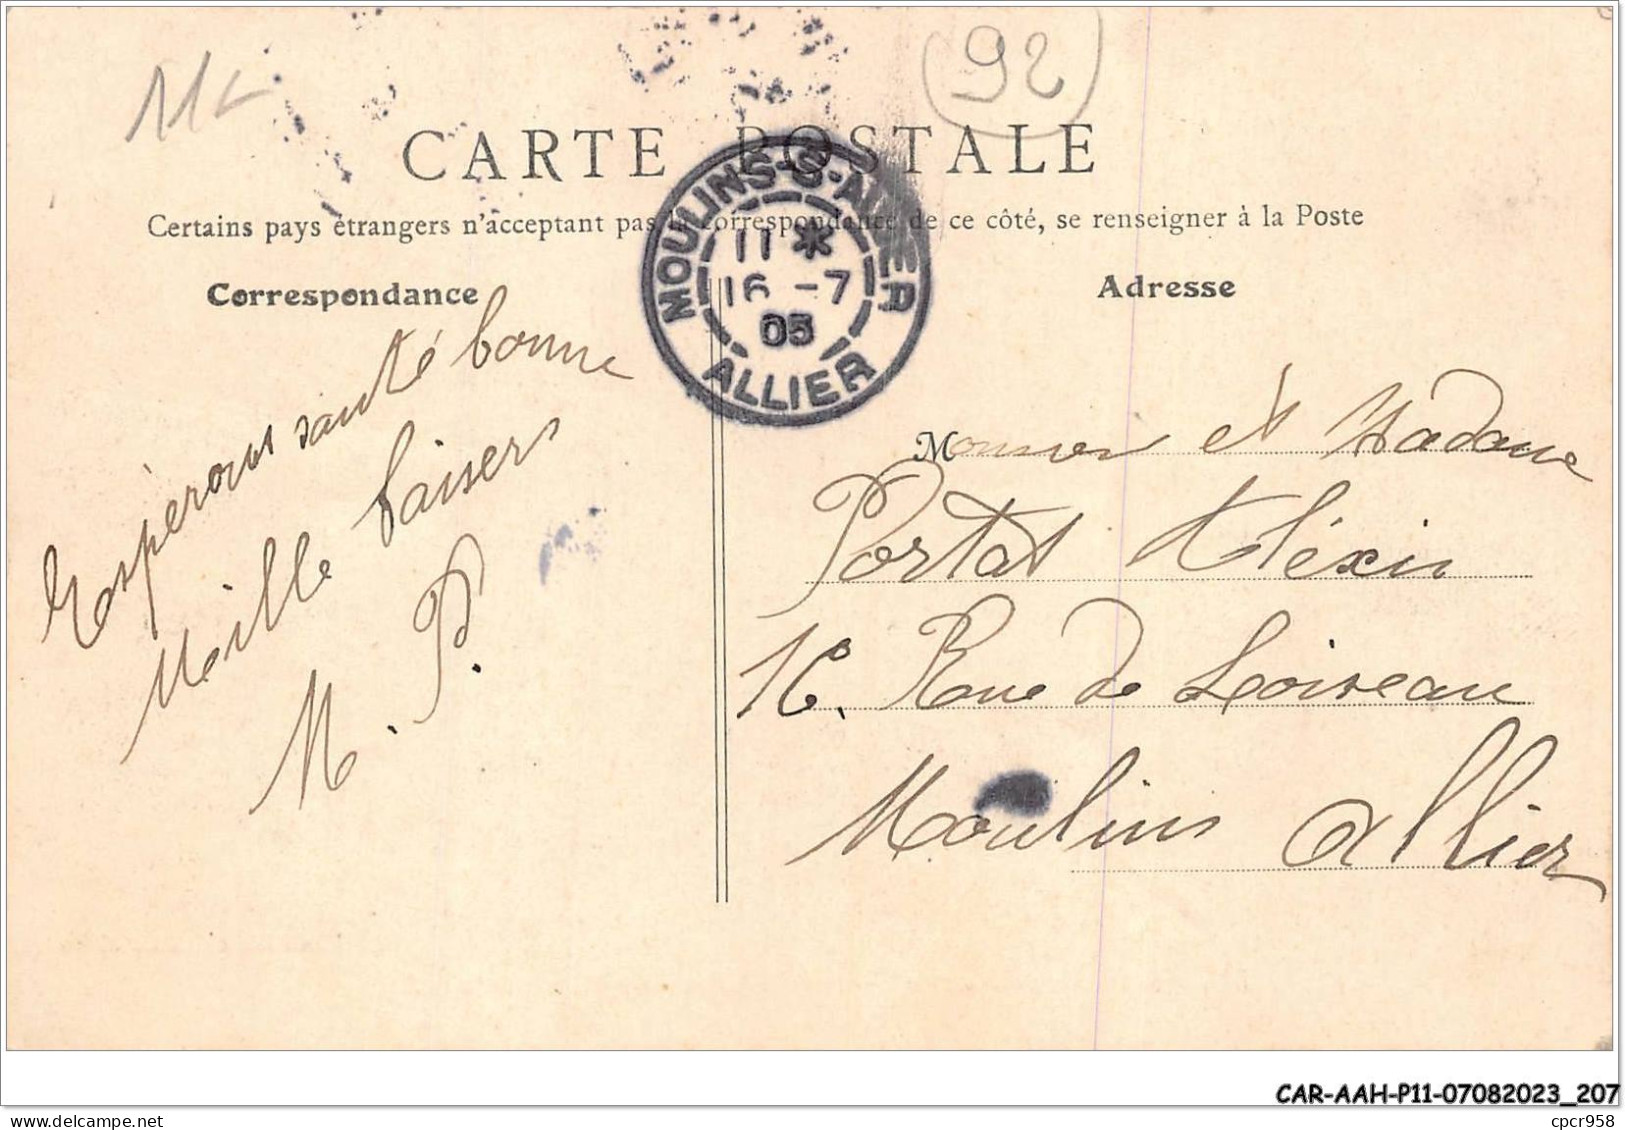 92
CARTE POSTALE
Certains pays étrangers n'acceptant pas la correspondance de ce côté, se renseigner à la Poste
MOULINS-S-ALLIER
11 *
16 -7
05
ALLIER
Correspondance
Adresse
Espérons santé bonne
Mille baisers
M. P.
Monsieur et Madame
Portat Aléxis
16. Rue de Loiseau
Moulins Allier
CAR-AAH-P11-07082023_207
cpcr958